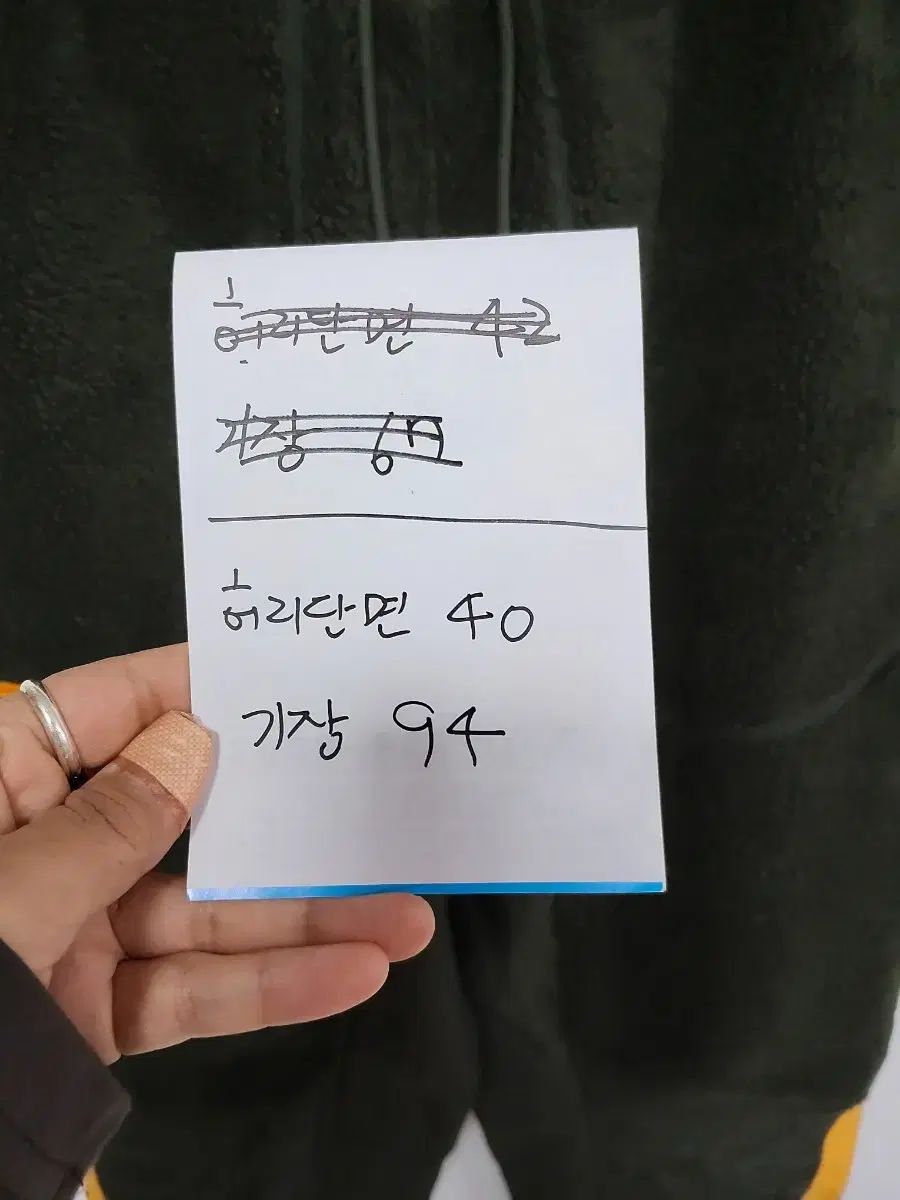 허리단면 42
기장
허리단면 40
기장 94